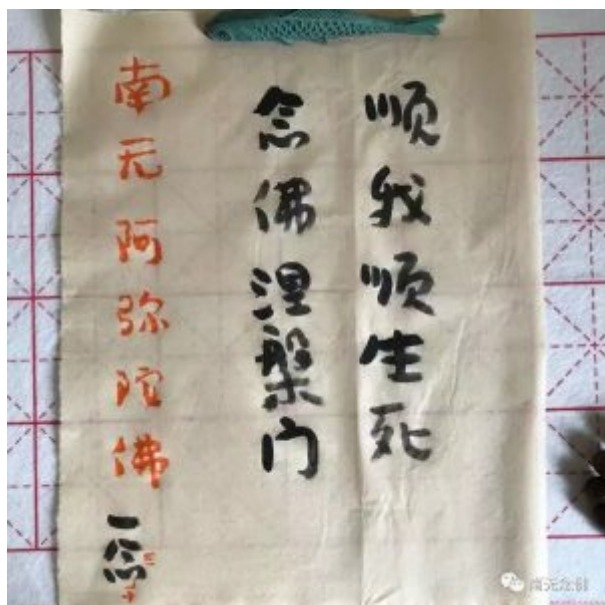 顺我顺生死
念佛涅槃门
南无阿弥陀佛
一念
南无念制